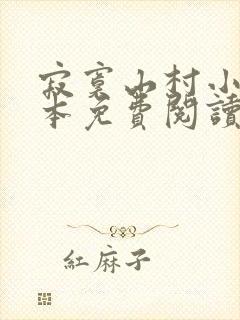 寂寞山村小
本免費閱讀
紅麻子